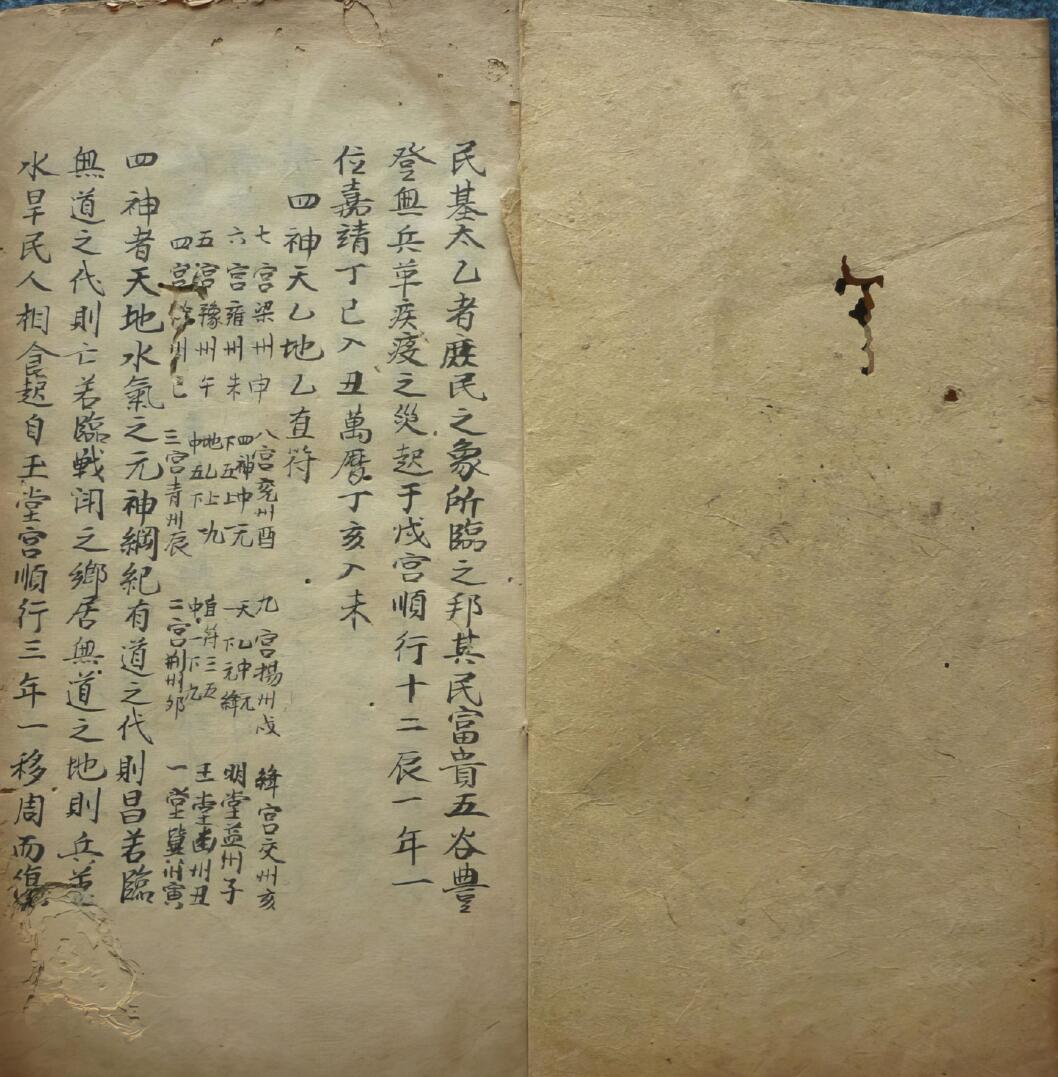 民基太乙者庶民之象所臨之邦其民富貴五谷豊
登無兵革疾疫之災起于戌宮順行十二辰一年一
位嘉靖丁巳入丑萬曆丁亥入未
四神天乙地乙直符
七宮梁州申
六宮雍州未
五宮豫州午
四宮州巳
八宮兖州酉
四神中元
下五上
地乙上九
中五下
三宮青州辰
九宮揚州戌
天乙中元
下元絳
直符三五
中一下九
二宮荆州卯
絳宮交州亥
明堂益州子
玉堂幽州丑
一堂冀州寅
四神者天地水氣之元神綱紀有道之代則昌若臨
無道之代則亡若臨戰閗之鄉居無道之地則兵
水旱民人相食起自玉堂宮順行三年一移周而復